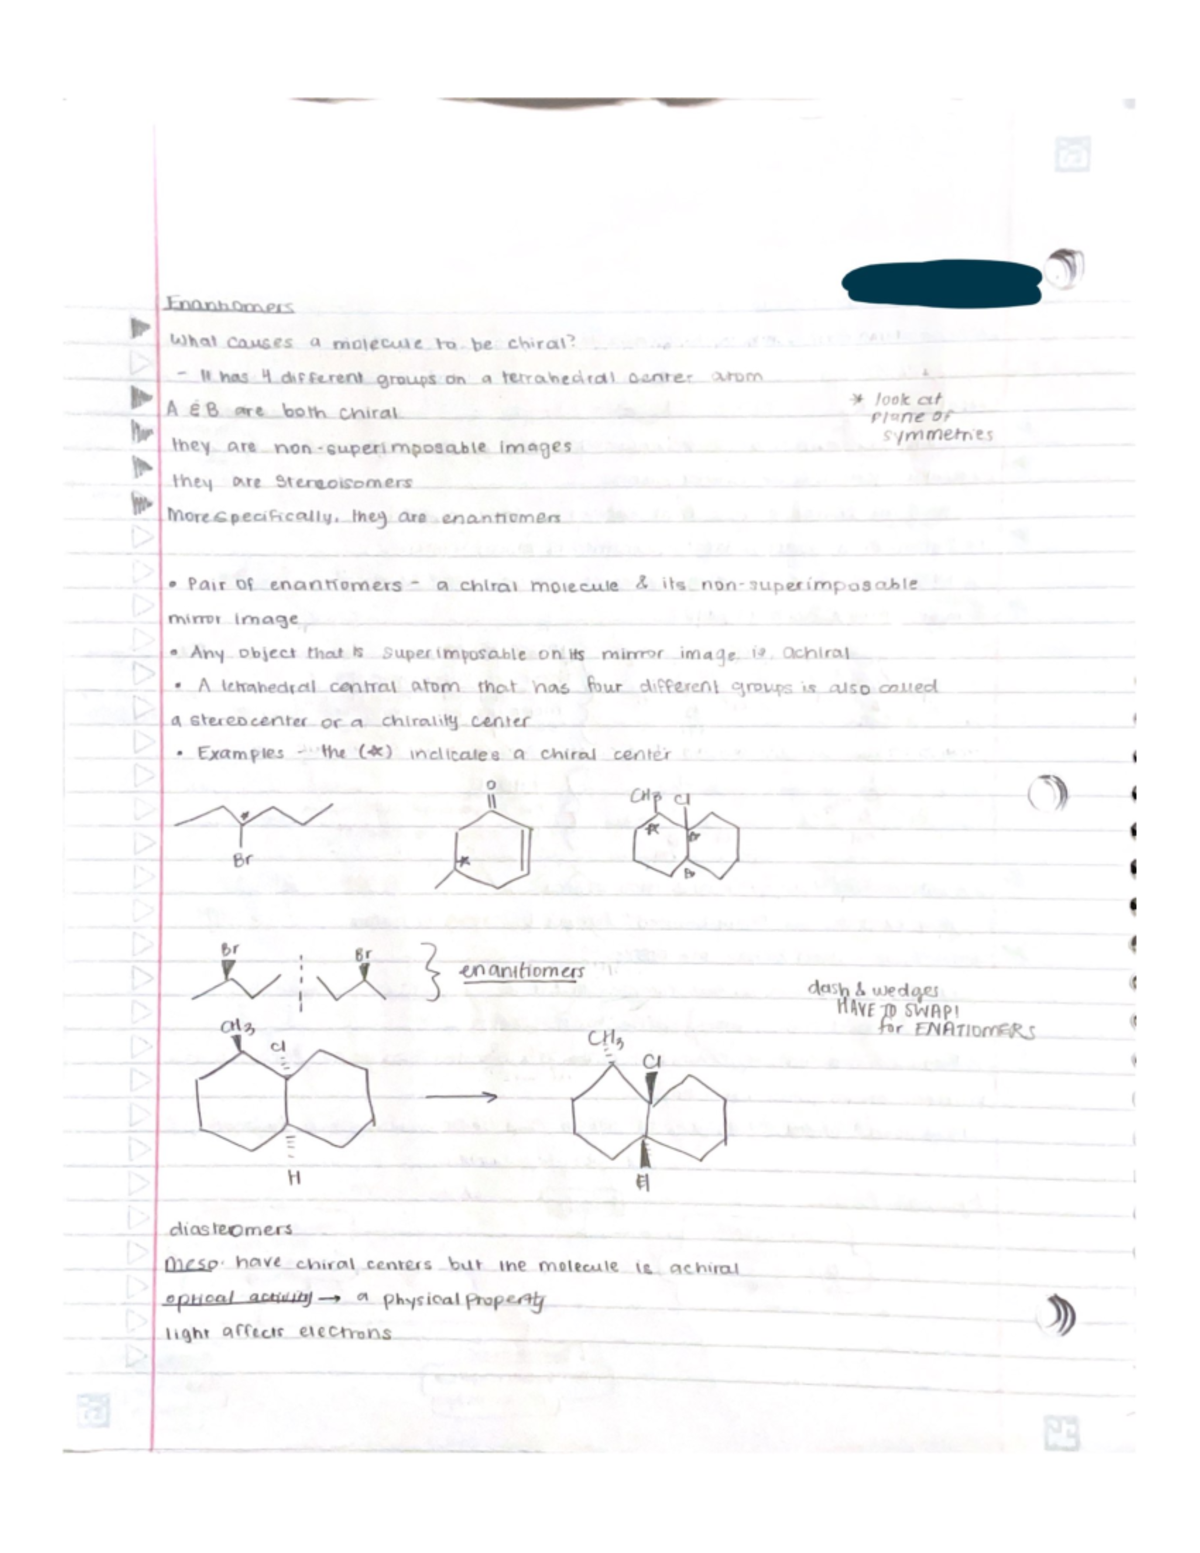 Enantiomers
What causes a molecule to be chiral?
- It has 4 different groups on a tetrahedral center atom
A & B are both chiral
* look at
plane of
symmetries
they are non-superimposable images
they are stereoisomers
More specifically, they are enantiomers
• Pair of enantiomers - a chiral molecule & its non-superimposable
mirror image
• Any object that is superimposable on its mirror image is achiral
• A tetrahedral central atom that has four different groups is also called
a stereocenter or a chirality center
• Examples - the (*) indicates a chiral center
O
CH3 Cl
* * * *
Br
Br Br
enanitiomers
dash & wedges
HAVE TO SWAP!
for ENATIOMERS
CH3 Cl
CH3
Cl
H
H
diasteromers
meso- have chiral centers but the molecule is achiral
optical activity → a physical property
light affects electrons